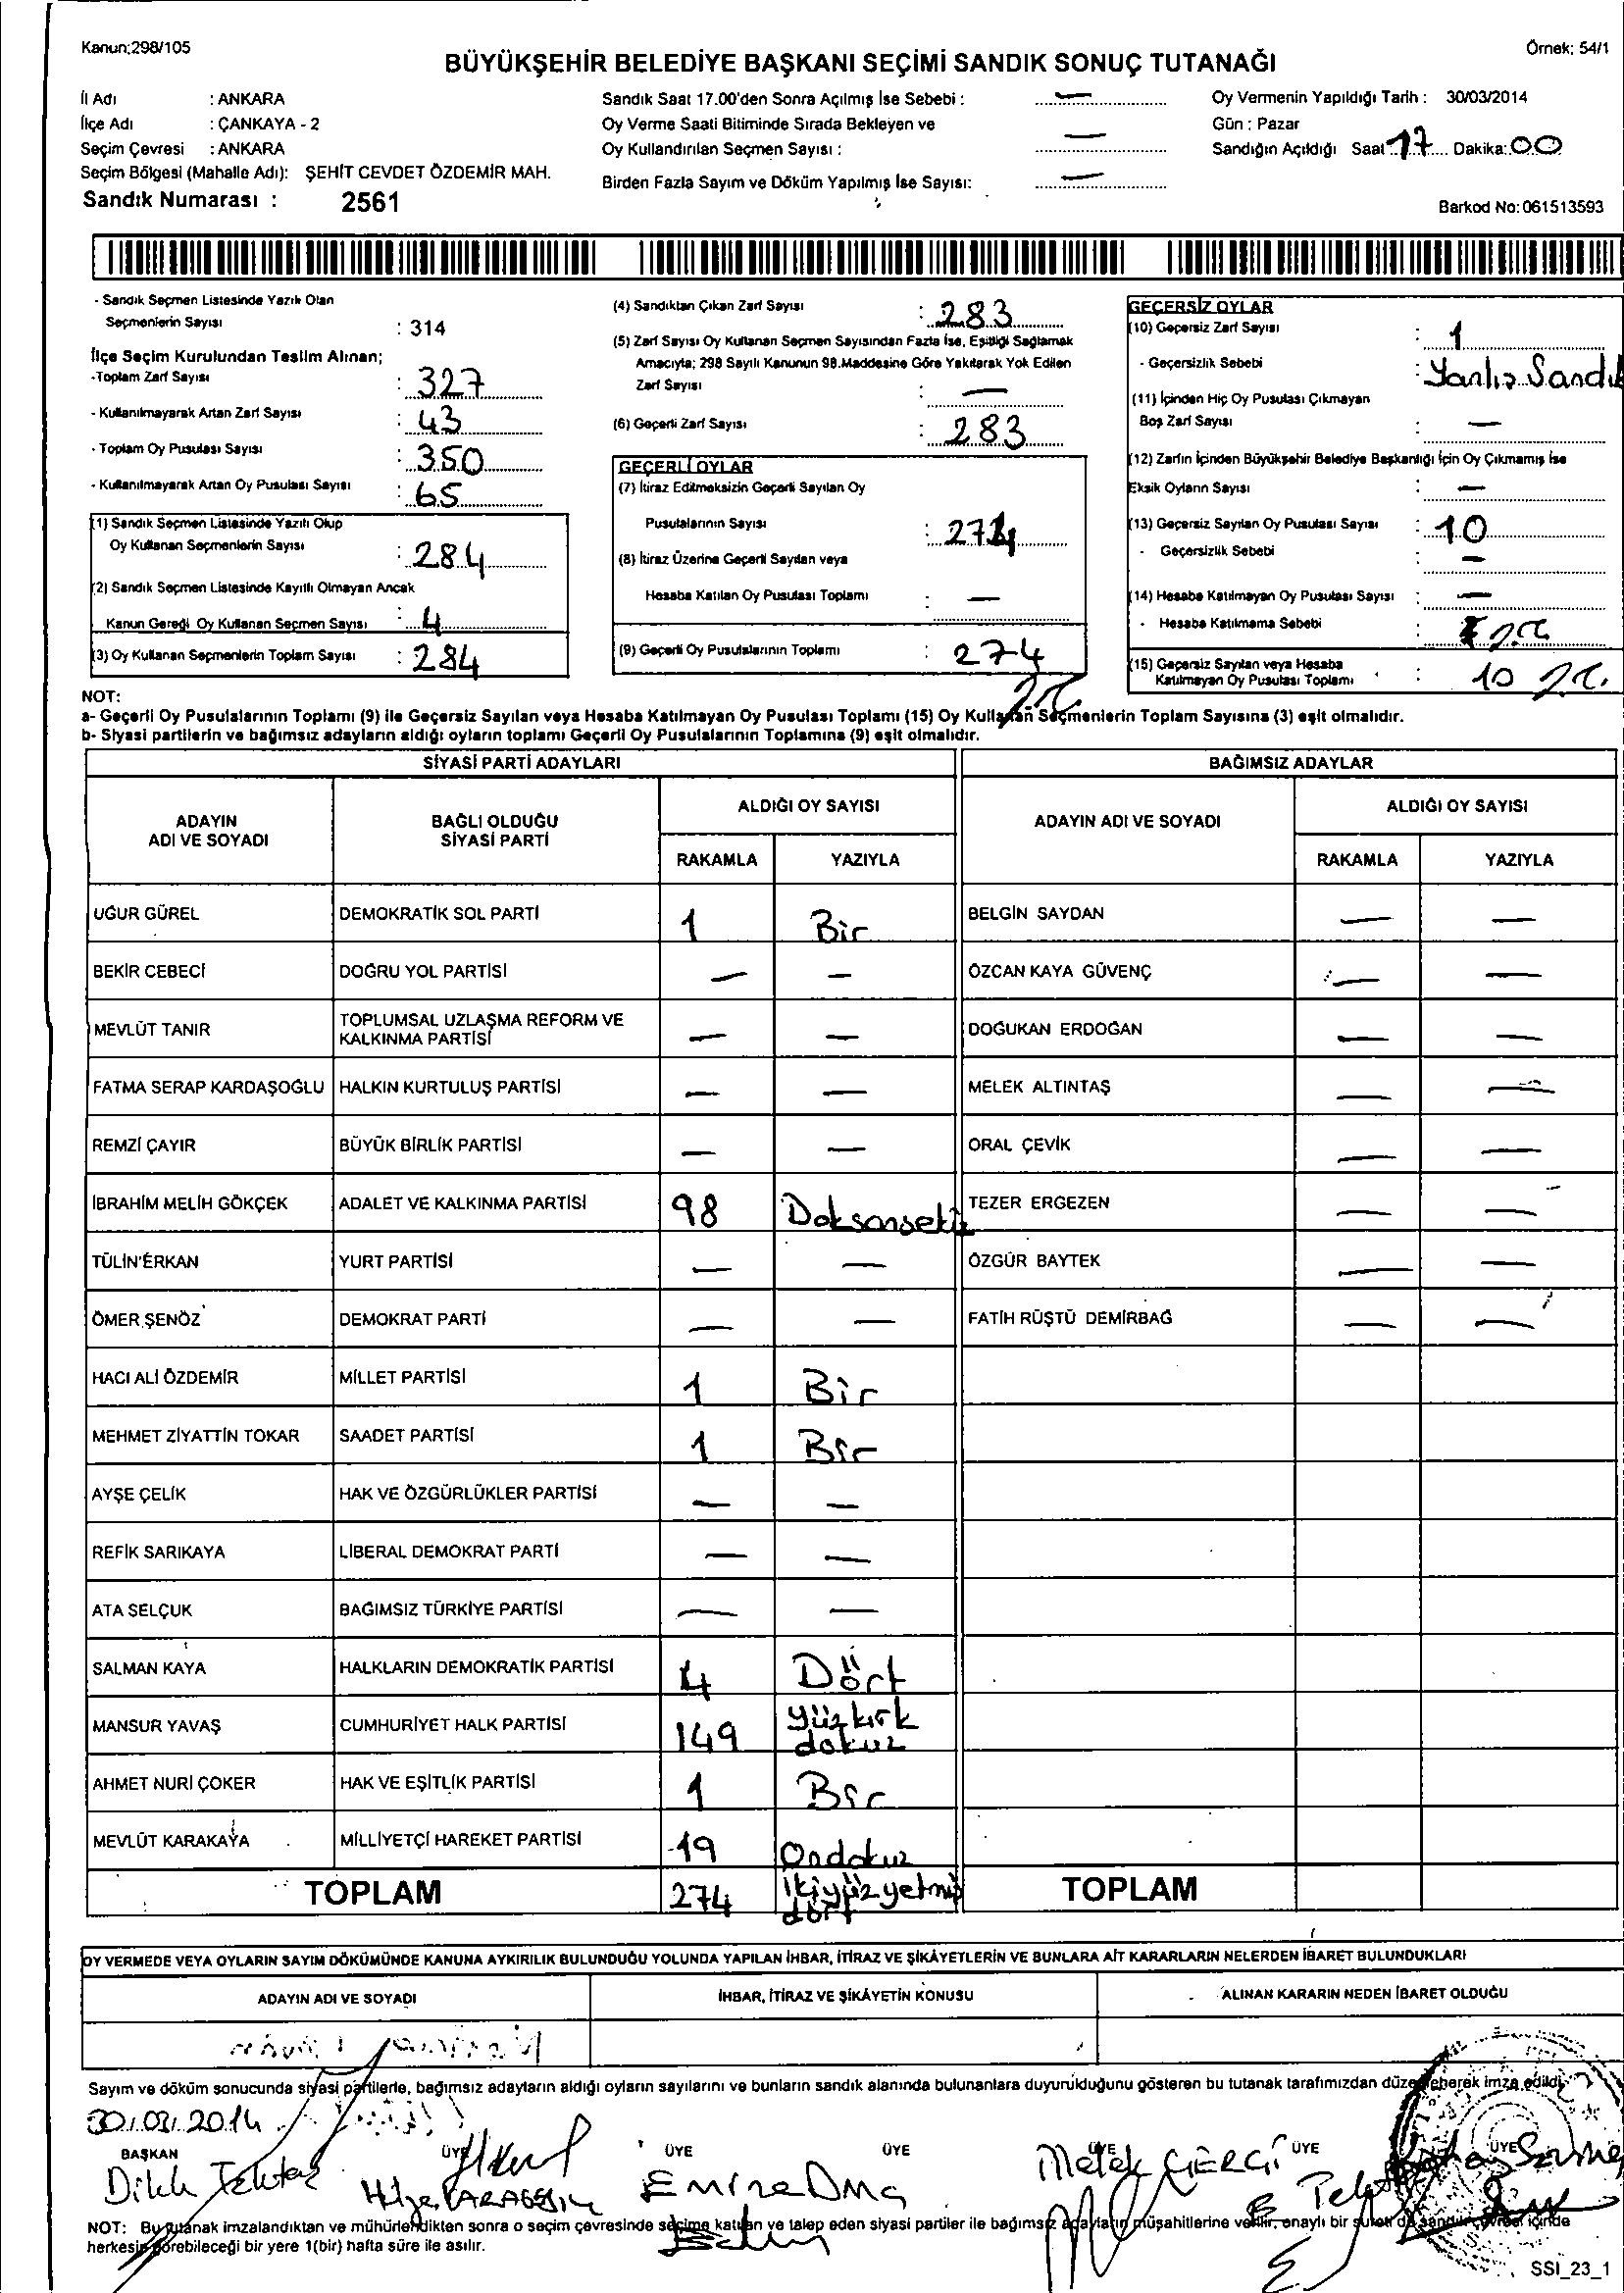 Kanun;298/105
Örnek: 54/1
BÜYÜKŞEHİR BELEDİYE BAŞKANI SEÇİMİ SANDIK SONUÇ TUTANAĞI
İl Adı : ANKARA
İlçe Adı : ÇANKAYA - 2
Seçim Çevresi : ANKARA
Seçim Bölgesi (Mahalle Adı): ŞEHİT CEVDET ÖZDEMİR MAH.
Sandık Numarası : 2561
Sandık Saat 17.00'den Sonra Açılmış İse Sebebi : —
Oy Verme Saati Bitiminde Sırada Bekleyen ve
Oy Kullandırılan Seçmen Sayısı : —
Birden Fazla Sayım ve Döküm Yapılmış İse Sayısı: —
Oy Vermenin Yapıldığı Tarih : 30/03/2014
Gün : Pazar
Sandığın Açıldığı Saat 17 Dakika: 00
Barkod No: 061513593
- Sandık Seçmen Listesinde Yazılı Olan
Seçmenlerin Sayısı : 314
İlçe Seçim Kurulundan Teslim Alınan;
-Toplam Zarf Sayısı : 327
- Kullanılmayarak Artan Zarf Sayısı : 43
- Toplam Oy Pusulası Sayısı : 350
- Kullanılmayarak Artan Oy Pusulası Sayısı : 65
(1) Sandık Seçmen Listesinde Yazılı Olup
Oy Kullanan Seçmenlerin Sayısı : 284
(2) Sandık Seçmen Listesinde Kayıtlı Olmayan Ancak
Kanun Gereği Oy Kullanan Seçmen Sayısı : 4
(3) Oy Kullanan Seçmenlerin Toplam Sayısı : 284
(4) Sandıktan Çıkan Zarf Sayısı : 283
(5) Zarf Sayısı Oy Kullanan Seçmen Sayısından Fazla İse, Eşitliği Sağlamak
Amacıyla; 298 Sayılı Kanunun 98.Maddesine Göre Yakılarak Yok Edilen
Zarf Sayısı : —
(6) Geçerli Zarf Sayısı : 283
GEÇERLİ OYLAR
(7) İtiraz Edilmeksizin Geçerli Sayılan Oy
Pusulalarının Sayısı : 274
(8) İtiraz Üzerine Geçerli Sayılan veya
Hesaba Katılan Oy Pusulası Toplamı : —
(9) Geçerli Oy Pusulalarının Toplamı : 274
GEÇERSİZ OYLAR
(10) Geçersiz Zarf Sayısı : 1
- Geçersizlik Sebebi : Yanlış Sandık
(11) İçinden Hiç Oy Pusulası Çıkmayan
Boş Zarf Sayısı : —
(12) Zarfın İçinden Büyükşehir Belediye Başkanlığı İçin Oy Çıkmamış İse
Eksik Oyların Sayısı : —
(13) Geçersiz Sayılan Oy Pusulası Sayısı : 10
- Geçersizlik Sebebi : —
(14) Hesaba Katılmayan Oy Pusulası Sayısı : —
- Hesaba Katılmama Sebebi :
(15) Geçersiz Sayılan veya Hesaba
Katılmayan Oy Pusulası Toplamı : 10
NOT:
a- Geçerli Oy Pusulalarının Toplamı (9) ile Geçersiz Sayılan veya Hesaba Katılmayan Oy Pusulası Toplamı (15) Oy Kullanan Seçmenlerin Toplam Sayısına (3) eşit olmalıdır.
b- Siyasi partilerin ve bağımsız adayların aldığı oyların toplamı Geçerli Oy Pusulalarının Toplamına (9) eşit olmalıdır.
SİYASİ PARTİ ADAYLARI BAĞIMSIZ ADAYLAR
ADAYIN ADI VE SOYADI BAĞLI OLDUĞU SİYASİ PARTİ ALDIĞI OY SAYISI ADAYIN ADI VE SOYADI ALDIĞI OY SAYISI
RAKAMLA YAZIYLA RAKAMLA YAZIYLA
UĞUR GÜREL DEMOKRATİK SOL PARTİ 1 Bir BELGİN SAYDAN — —
BEKİR CEBECİ DOĞRU YOL PARTİSİ — — ÖZCAN KAYA GÜVENÇ — —
MEVLÜT TANIR TOPLUMSAL UZLAŞMA REFORM VE KALKINMA PARTİSİ — — DOĞUKAN ERDOĞAN — —
FATMA SERAP KARDAŞOĞLU HALKIN KURTULUŞ PARTİSİ — — MELEK ALTINTAŞ — —
REMZİ ÇAYIR BÜYÜK BİRLİK PARTİSİ — — ORAL ÇEVİK — —
İBRAHİM MELİH GÖKÇEK ADALET VE KALKINMA PARTİSİ 98 Doksansekiz TEZER ERGEZEN — —
TÜLİN ERKAN YURT PARTİSİ — — ÖZGÜR BAYTEK — —
ÖMER ŞENÖZ DEMOKRAT PARTİ — — FATİH RÜŞTÜ DEMİRBAĞ — —
HACI ALİ ÖZDEMİR MİLLET PARTİSİ 1 Bir
MEHMET ZİYATTİN TOKAR SAADET PARTİSİ 1 Bir
AYŞE ÇELİK HAK VE ÖZGÜRLÜKLER PARTİSİ — —
REFİK SARIKAYA LİBERAL DEMOKRAT PARTİ — —
ATA SELÇUK BAĞIMSIZ TÜRKİYE PARTİSİ — —
SALMAN KAYA HALKLARIN DEMOKRATİK PARTİSİ 4 Dört
MANSUR YAVAŞ CUMHURİYET HALK PARTİSİ 149 Yüzkırk dokuz
AHMET NURİ ÇOKER HAK VE EŞİTLİK PARTİSİ 1 Bir
MEVLÜT KARAKAYA MİLLİYETÇİ HAREKET PARTİSİ 19 Ondokuz
TOPLAM 274 İkiyüzyetmiş dört TOPLAM
OY VERMEDE VEYA OYLARIN SAYIM DÖKÜMÜNDE KANUNA AYKIRILIK BULUNDUĞU YOLUNDA YAPILAN İHBAR, İTİRAZ VE ŞİKÂYETLERİN VE BUNLARA AİT KARARLARIN NELERDEN İBARET BULUNDUKLARI
ADAYIN ADI VE SOYADI İHBAR, İTİRAZ VE ŞİKÂYETİN KONUSU ALINAN KARARIN NEDEN İBARET OLDUĞU
Sayım ve döküm sonucunda siyasi partilerle, bağımsız adayların aldığı oyların sayılarını ve bunların sandık alanında bulunanlara duyurulduğunu gösteren bu tutanak tarafımızdan düzenlenerek imza edildi.
30/03/2014
BAŞKAN ÜYE ÜYE ÜYE ÜYE ÜYE ÜYE
Melek
NOT: Bu tutanak imzalandıktan ve mühürlendikten sonra o seçim çevresinde seçime katılan ve talep eden siyasi partiler ile bağımsız adayların müşahitlerine verilir, onaylı bir sureti de sandık çevresi içinde
herkesin görebileceği bir yere 1(bir) hafta süre ile asılır.
SSI_23_1